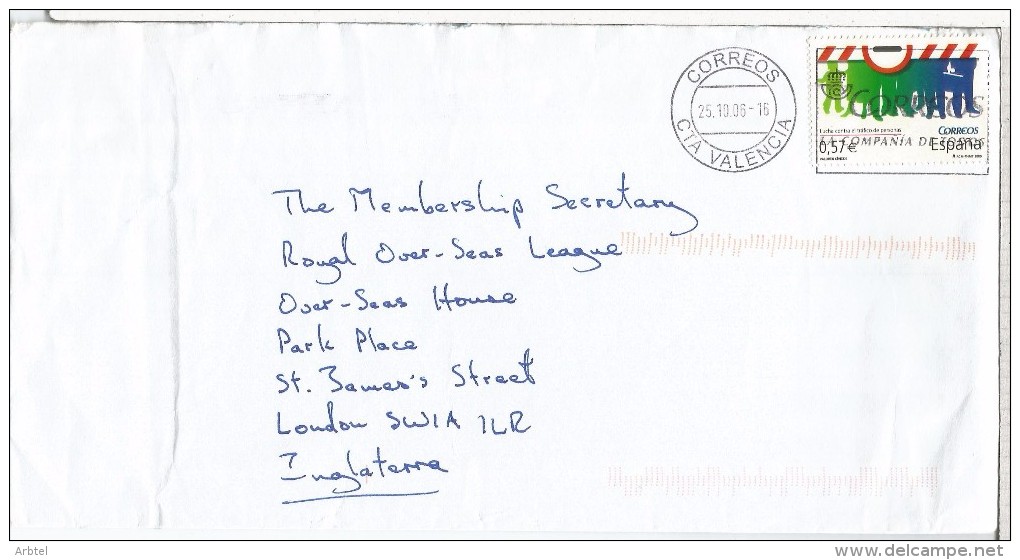 CORREOS
25.10.06-16
CTA VALENCIA
CORREOS
LA COMPAÑÍA DE TODOS
Lucha contra el tráfico de personas
CORREOS
0,57€ España
The Membership Secretary
Royal Over-Seas League
Over-Seas House
Park Place
St. James's Street
London SW1A 1LR
Inglaterra
Arbtel
www.delcampe.net